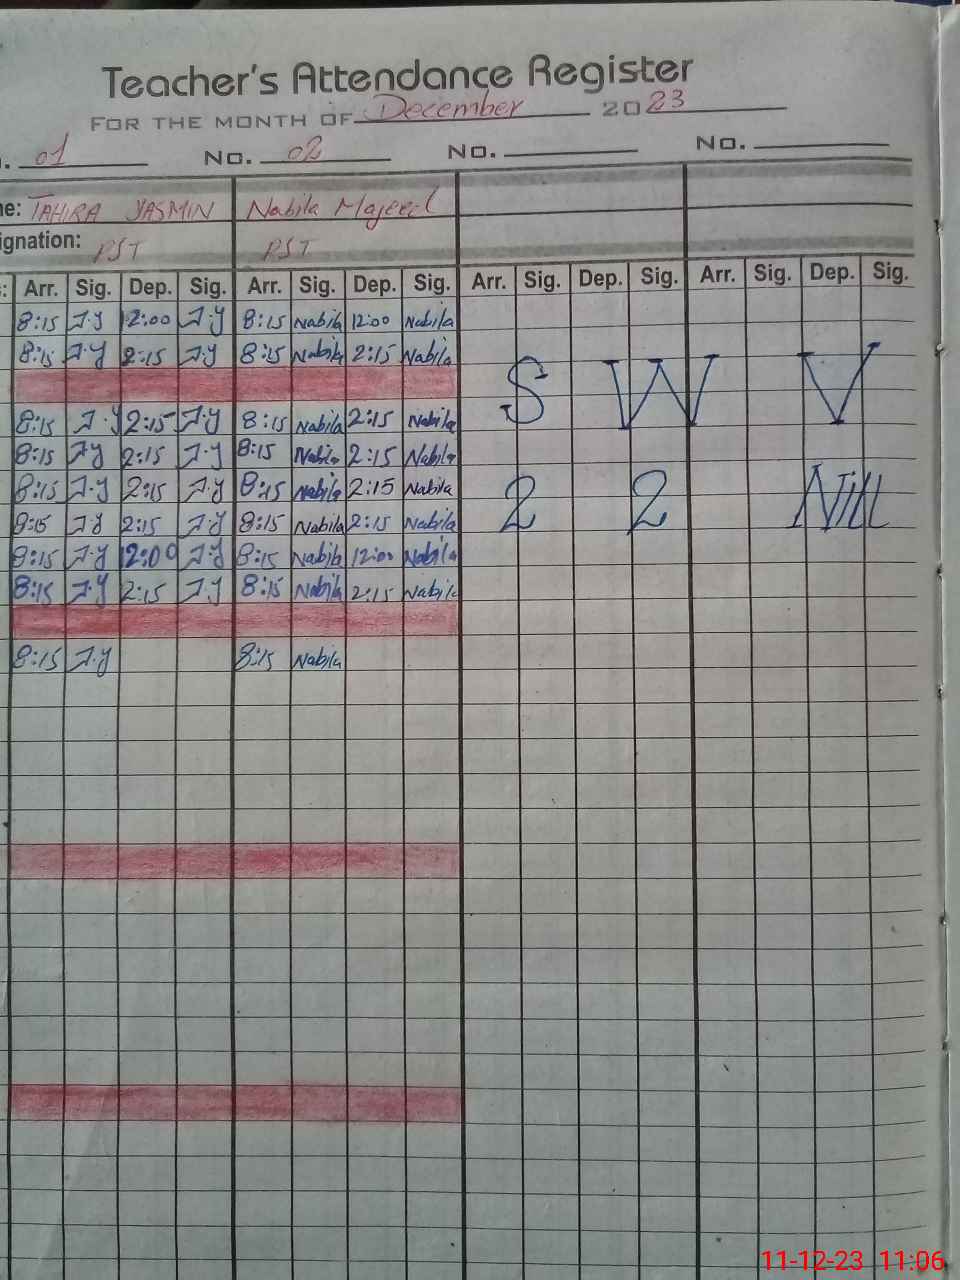 Teacher's Attendance Register
FOR THE MONTH OF December 2023
. 01 No. 02 No. No.
ne: TAHIRA YASMIN Nabila Majeed
ignation: PST PST
s: Arr. Sig. Dep. Sig. Arr. Sig. Dep. Sig. Arr. Sig. Dep. Sig. Arr. Sig. Dep. Sig.
8:15 T.Y 12:00 T.Y 8:15 Nabila 12:00 Nabila
8:15 T.Y 2:15 T.Y 8:15 Nabila 2:15 Nabila
S W V
8:15 T.Y 2:15 T.Y 8:15 Nabila 2:15 Nabila
8:15 T.Y 2:15 T.Y 8:15 Nabila 2:15 Nabila
8:15 T.Y 2:15 T.Y 8:15 Nabila 2:15 Nabila
2 2 Nill
8:15 T.Y 2:15 T.Y 8:15 Nabila 2:15 Nabila
8:15 T.Y 12:00 T.Y 8:15 Nabila 12:00 Nabila
8:15 T.Y 2:15 T.Y 8:15 Nabila 2:15 Nabila
8:15 T.Y 8:15 Nabila
11-12-23 11:06